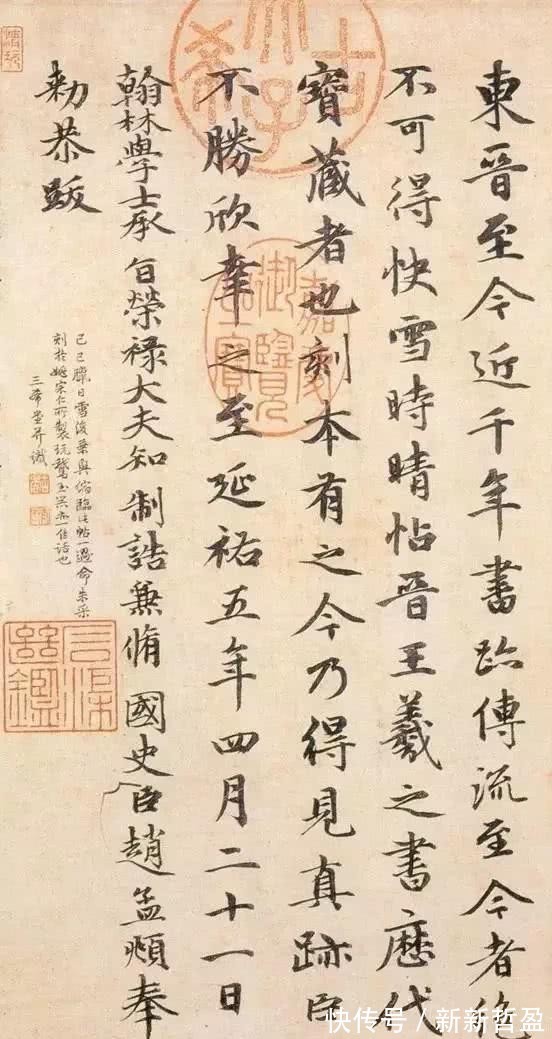 東晉至今近千年書跡傳流至今者絶
不可得快雪時晴帖晉王羲之書歷代
寶藏者也刻本有之今乃得見真跡臣
不勝欣幸之至延祐五年四月二十一日
翰林學士承旨榮祿大夫知制誥兼脩國史臣趙孟頫奉
勑恭跋
己巳臘日雪後乘興偶臨此帖一過命朱采
刻於姚宗仁所製玩鵞玉
三希堂并識
嘉慶御覽之寶
三希堂精鑑璽
快传号/新新哲盈